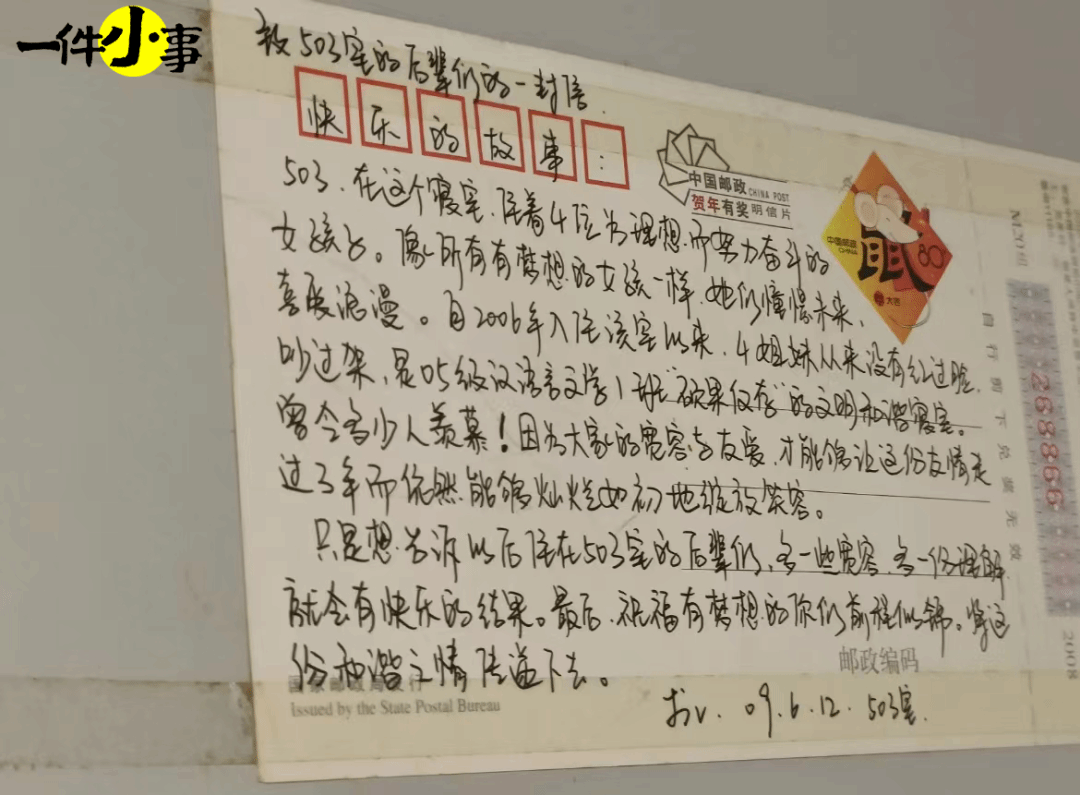 一件小事
致503室的后辈们的一封信
快乐的故事:
中国邮政 CHINA POST
贺年有奖明信片
中国邮政
CHINA
鼠
80
大吉
503.在这个寝室,住着4位为理想而努力奋斗的
女孩子。像所有有梦想的女孩一样,她们憧憬未来、
喜爱浪漫。自2006年入住该室以来,4姐妹从来没有红过脸、
吵过架,是05级汉语言文学1班"硕果仅存"的文明和谐寝室。
曾令多少人羡慕!因为大家的宽容与友爱,才能够让这份友情走
过3年而依然能够灿烂如初地绽放笑容。
只是想告诉以后住在503室的后辈们,多一些宽容,多一份理解
就会有快乐的结果。最后,祝福有梦想的你们前程似锦。将这
份和谐之情传递下去。
邮政编码
国家邮政局发行
Issued by the State Postal Bureau
09.6.12. 503室.
自行剪下兑奖无效
268866
2008